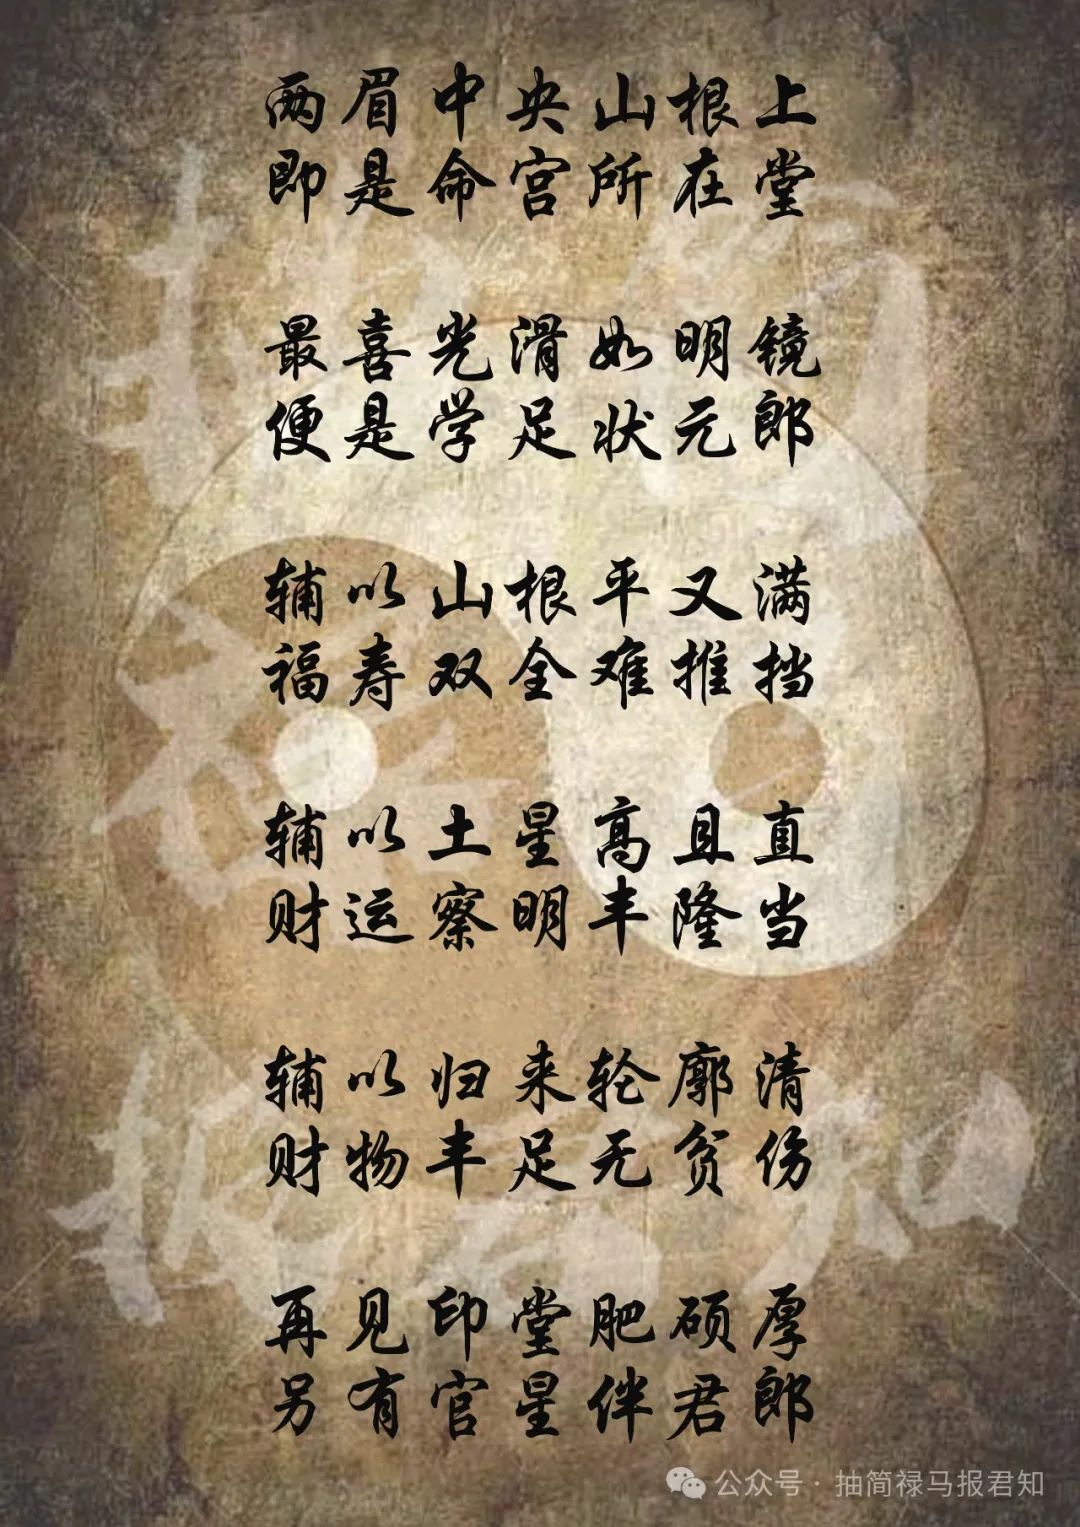 两眉中央山根上
即是命宫所在堂
最喜光滑如明镜
便是学足状元郎
辅以山根平又满
福寿双全难推挡
辅以土星高且直
财运察明丰隆当
辅以归来轮廓清
财物丰足无贫伤
再见印堂肥硕厚
另有官星伴君郎
公众号·抽简禄马报君知